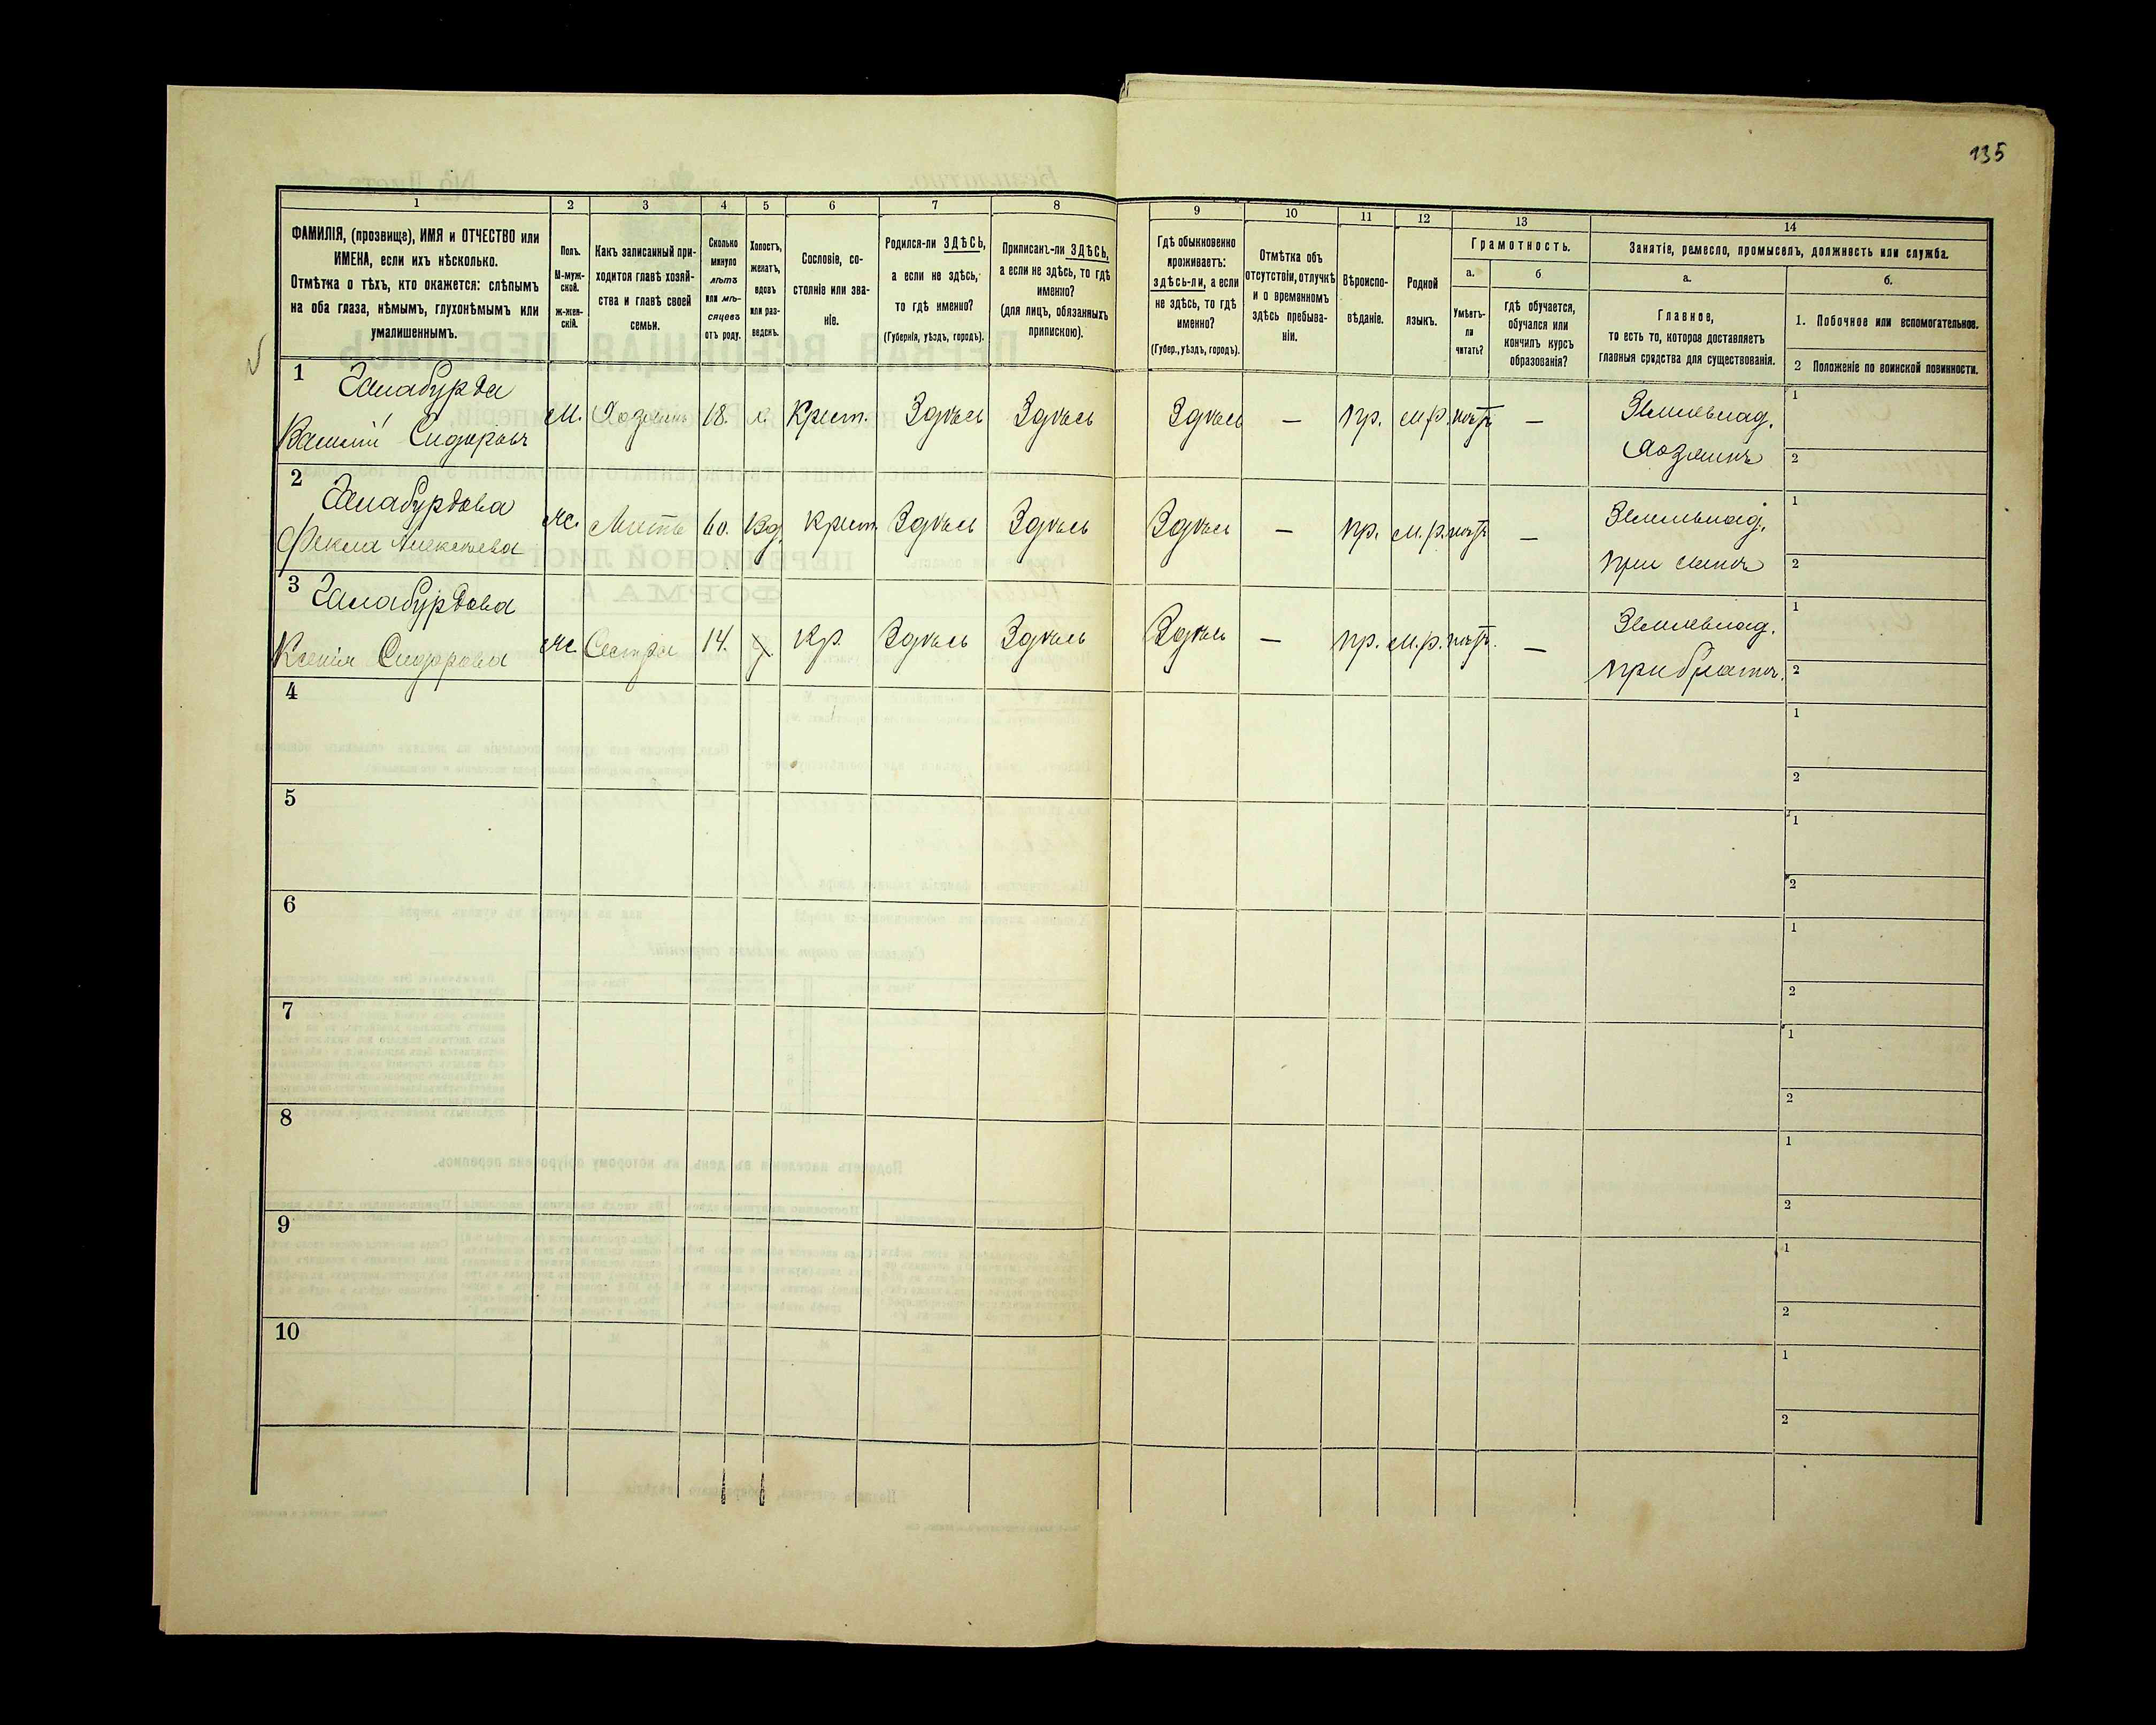 135
1 2 3 4 5 6 7 8 9 10 11 12 13 14
ФАМИЛІЯ, (прозвище), ИМЯ и ОТЧЕСТВО или
ИМЕНА, если ихъ нѣсколько.
Отмѣтка о тѣхъ, кто окажется: слѣпымъ
на оба глаза, нѣмымъ, глухонѣмымъ или
умалишеннымъ.
Полъ.
М-муж-
ской.
ж-жен-
скій.
Какъ записанный при-
ходится главѣ хозяй-
ства и главѣ своей
семьи.
Сколько
минуло
лѣтъ
или мѣ-
сяцевъ
отъ роду.
Холостъ,
женатъ,
вдовъ
или раз-
веденъ.
Сословіе, со-
стояніе или зва-
ніе.
Родился-ли ЗДѢСЬ,
а если не здѣсь,
то гдѣ именно?
(Губернія, уѣздъ, городъ).
Приписанъ-ли ЗДѢСЬ,
а если не здѣсь, то гдѣ
именно?
(для лицъ, обязанныхъ
припискою).
Гдѣ обыкновенно
проживаетъ:
здѣсь-ли, а если
не здѣсь, то гдѣ
именно?
(Губер., уѣздъ, городъ).
Отмѣтка объ
отсутстіи, отлучкѣ
и о временномъ
здѣсь пребыва-
ніи.
Вѣроиспо-
вѣданіе.
Родной
языкъ.
Грамотность.
а.
Умѣетъ-
ли
читать?
б
Гдѣ обучается,
обучался или
кончилъ курсъ
образованія?
Занятіе, ремесло, промыселъ, должность или служба.
а.
Главное,
то есть то, которое доставляетъ
главныя средства для существованія.
б.
1. Побочное или вспомогательное.
2 Положеніе по воинской повинности.
1 Галабурда
Василій Сидоровъ
М. Хозяинъ 18. х. Крест. Здѣсь Здѣсь Здѣсь — пр. м.р. нѣтъ —
Землевлад.
Хозяинъ
1
2
2 Галабурдова
Фекла Алексѣева
Ж. Мать 60. Вд. Крест. Здѣсь Здѣсь Здѣсь — пр. м.р. нѣтъ —
Землевлад.
при сынѣ
1
2
3 Галабурдова
Ксенія Сидорова
Ж. Сестра 14. Кр. Здѣсь Здѣсь Здѣсь — пр. м.р. нѣтъ. —
Землевлад.
при братѣ.
1
2
4
1
2
5
1
2
6
1
2
7
1
2
8
1
2
9
1
2
10
1
2